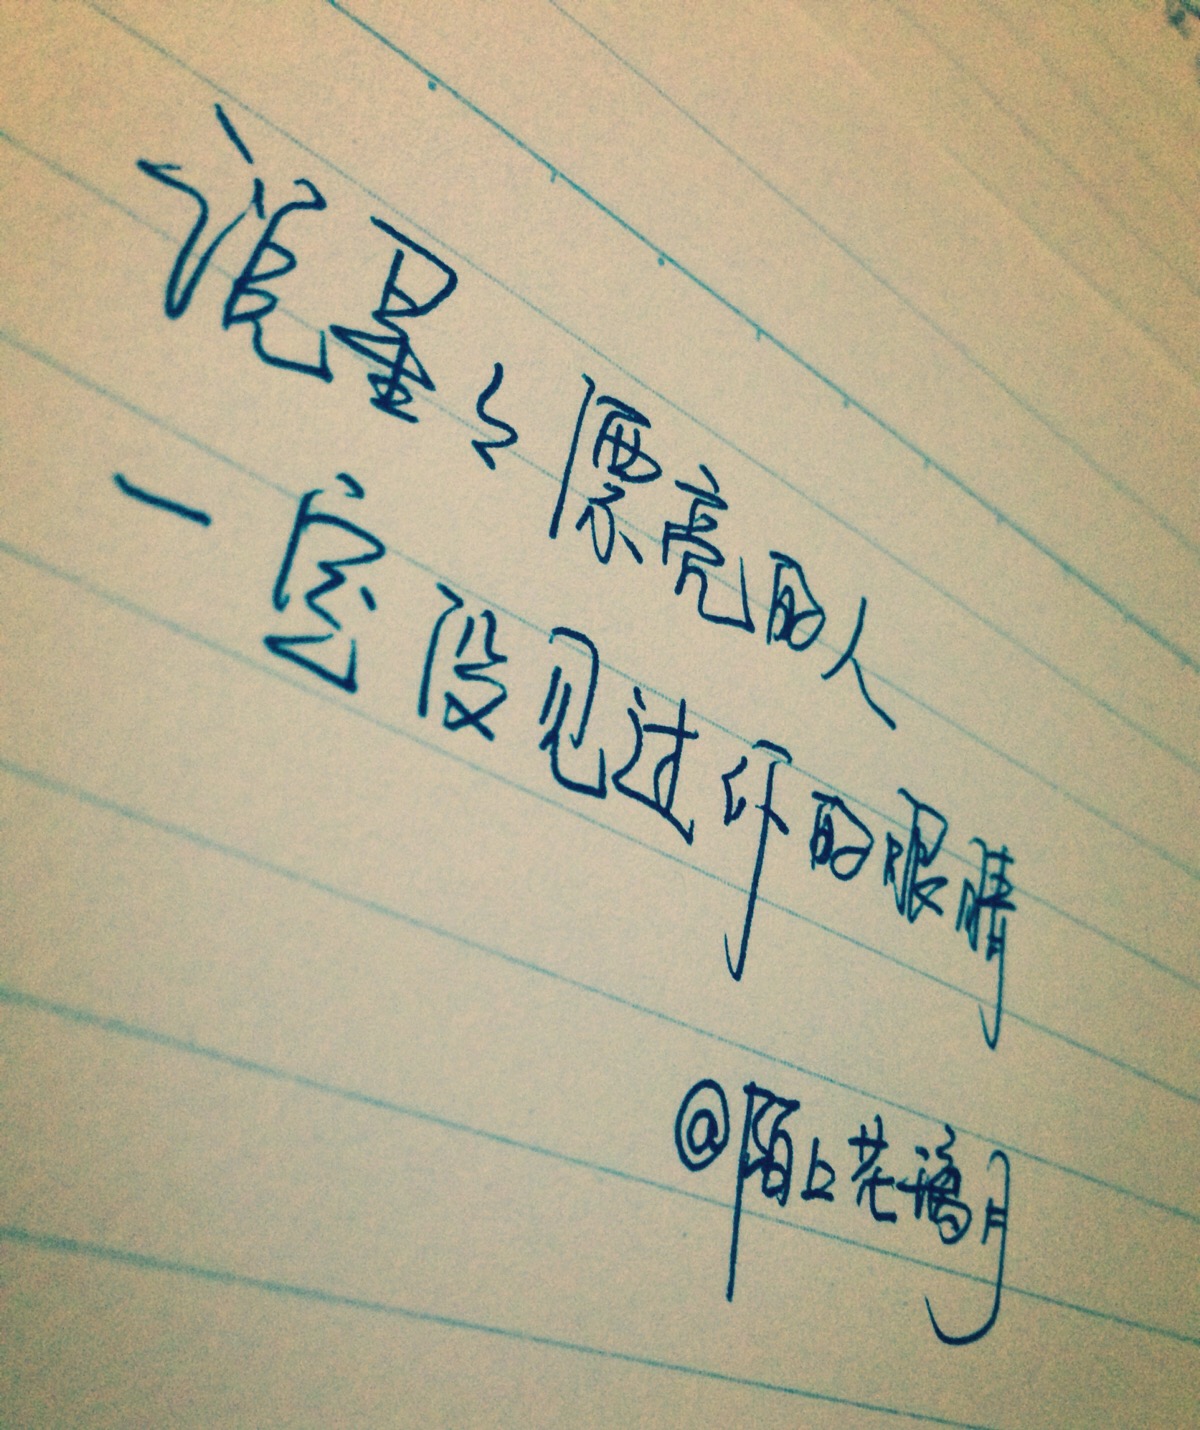 说星星漂亮的人
一定没见过你的眼睛
@陌上花漪月